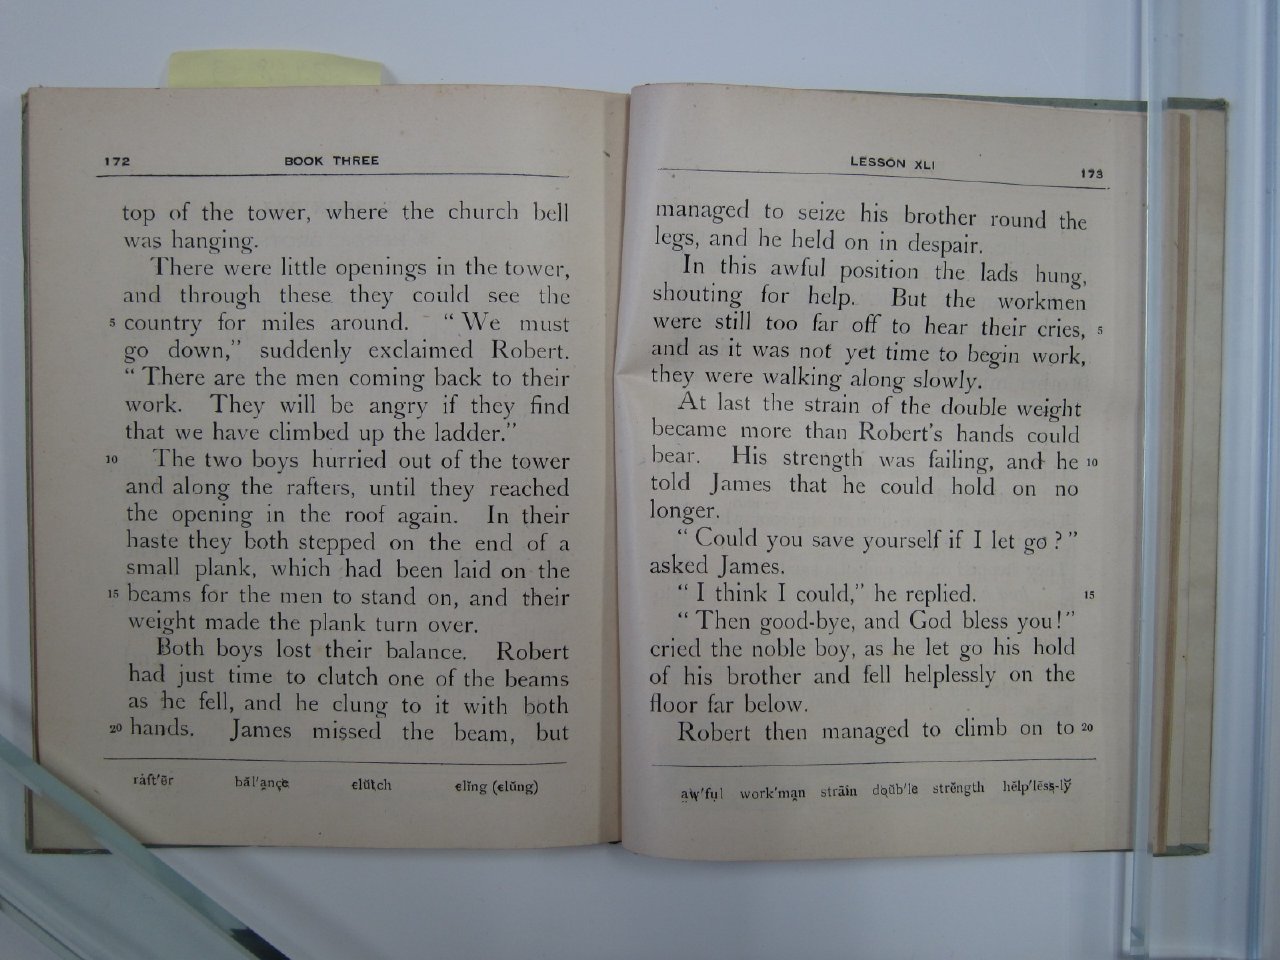 172
BOOK THREE
top of the tower, where the church bell
was hanging.
There were little openings in the tower,
and through these they could see the
5 country for miles around. "We must
go down," suddenly exclaimed Robert.
"There are the men coming back to their
work. They will be angry if they find
that we have climbed up the ladder."
10 The two boys hurried out of the tower
and along the rafters, until they reached
the opening in the roof again. In their
haste they both stepped on the end of a
small plank, which had been laid on the
15 beams for the men to stand on, and their
weight made the plank turn over.
Both boys lost their balance. Robert
had just time to clutch one of the beams
as he fell, and he clung to it with both
20 hands. James missed the beam, but
råft′ẽr băl′ançe clŭtch clĭng (clŭng)
LESSON XLI
173
managed to seize his brother round the
legs, and he held on in despair.
In this awful position the lads hung,
shouting for help. But the workmen
were still too far off to hear their cries, 5
and as it was not yet time to begin work,
they were walking along slowly.
At last the strain of the double weight
became more than Robert's hands could
bear. His strength was failing, and he 10
told James that he could hold on no
longer.
"Could you save yourself if I let go?"
asked James.
"I think I could," he replied. 15
"Then good-bye, and God bless you!"
cried the noble boy, as he let go his hold
of his brother and fell helplessly on the
floor far below.
Robert then managed to climb on to 20
a̤w′fụl work′mạn strāin doŭb′le strĕngth hĕlp′lĕss-lў